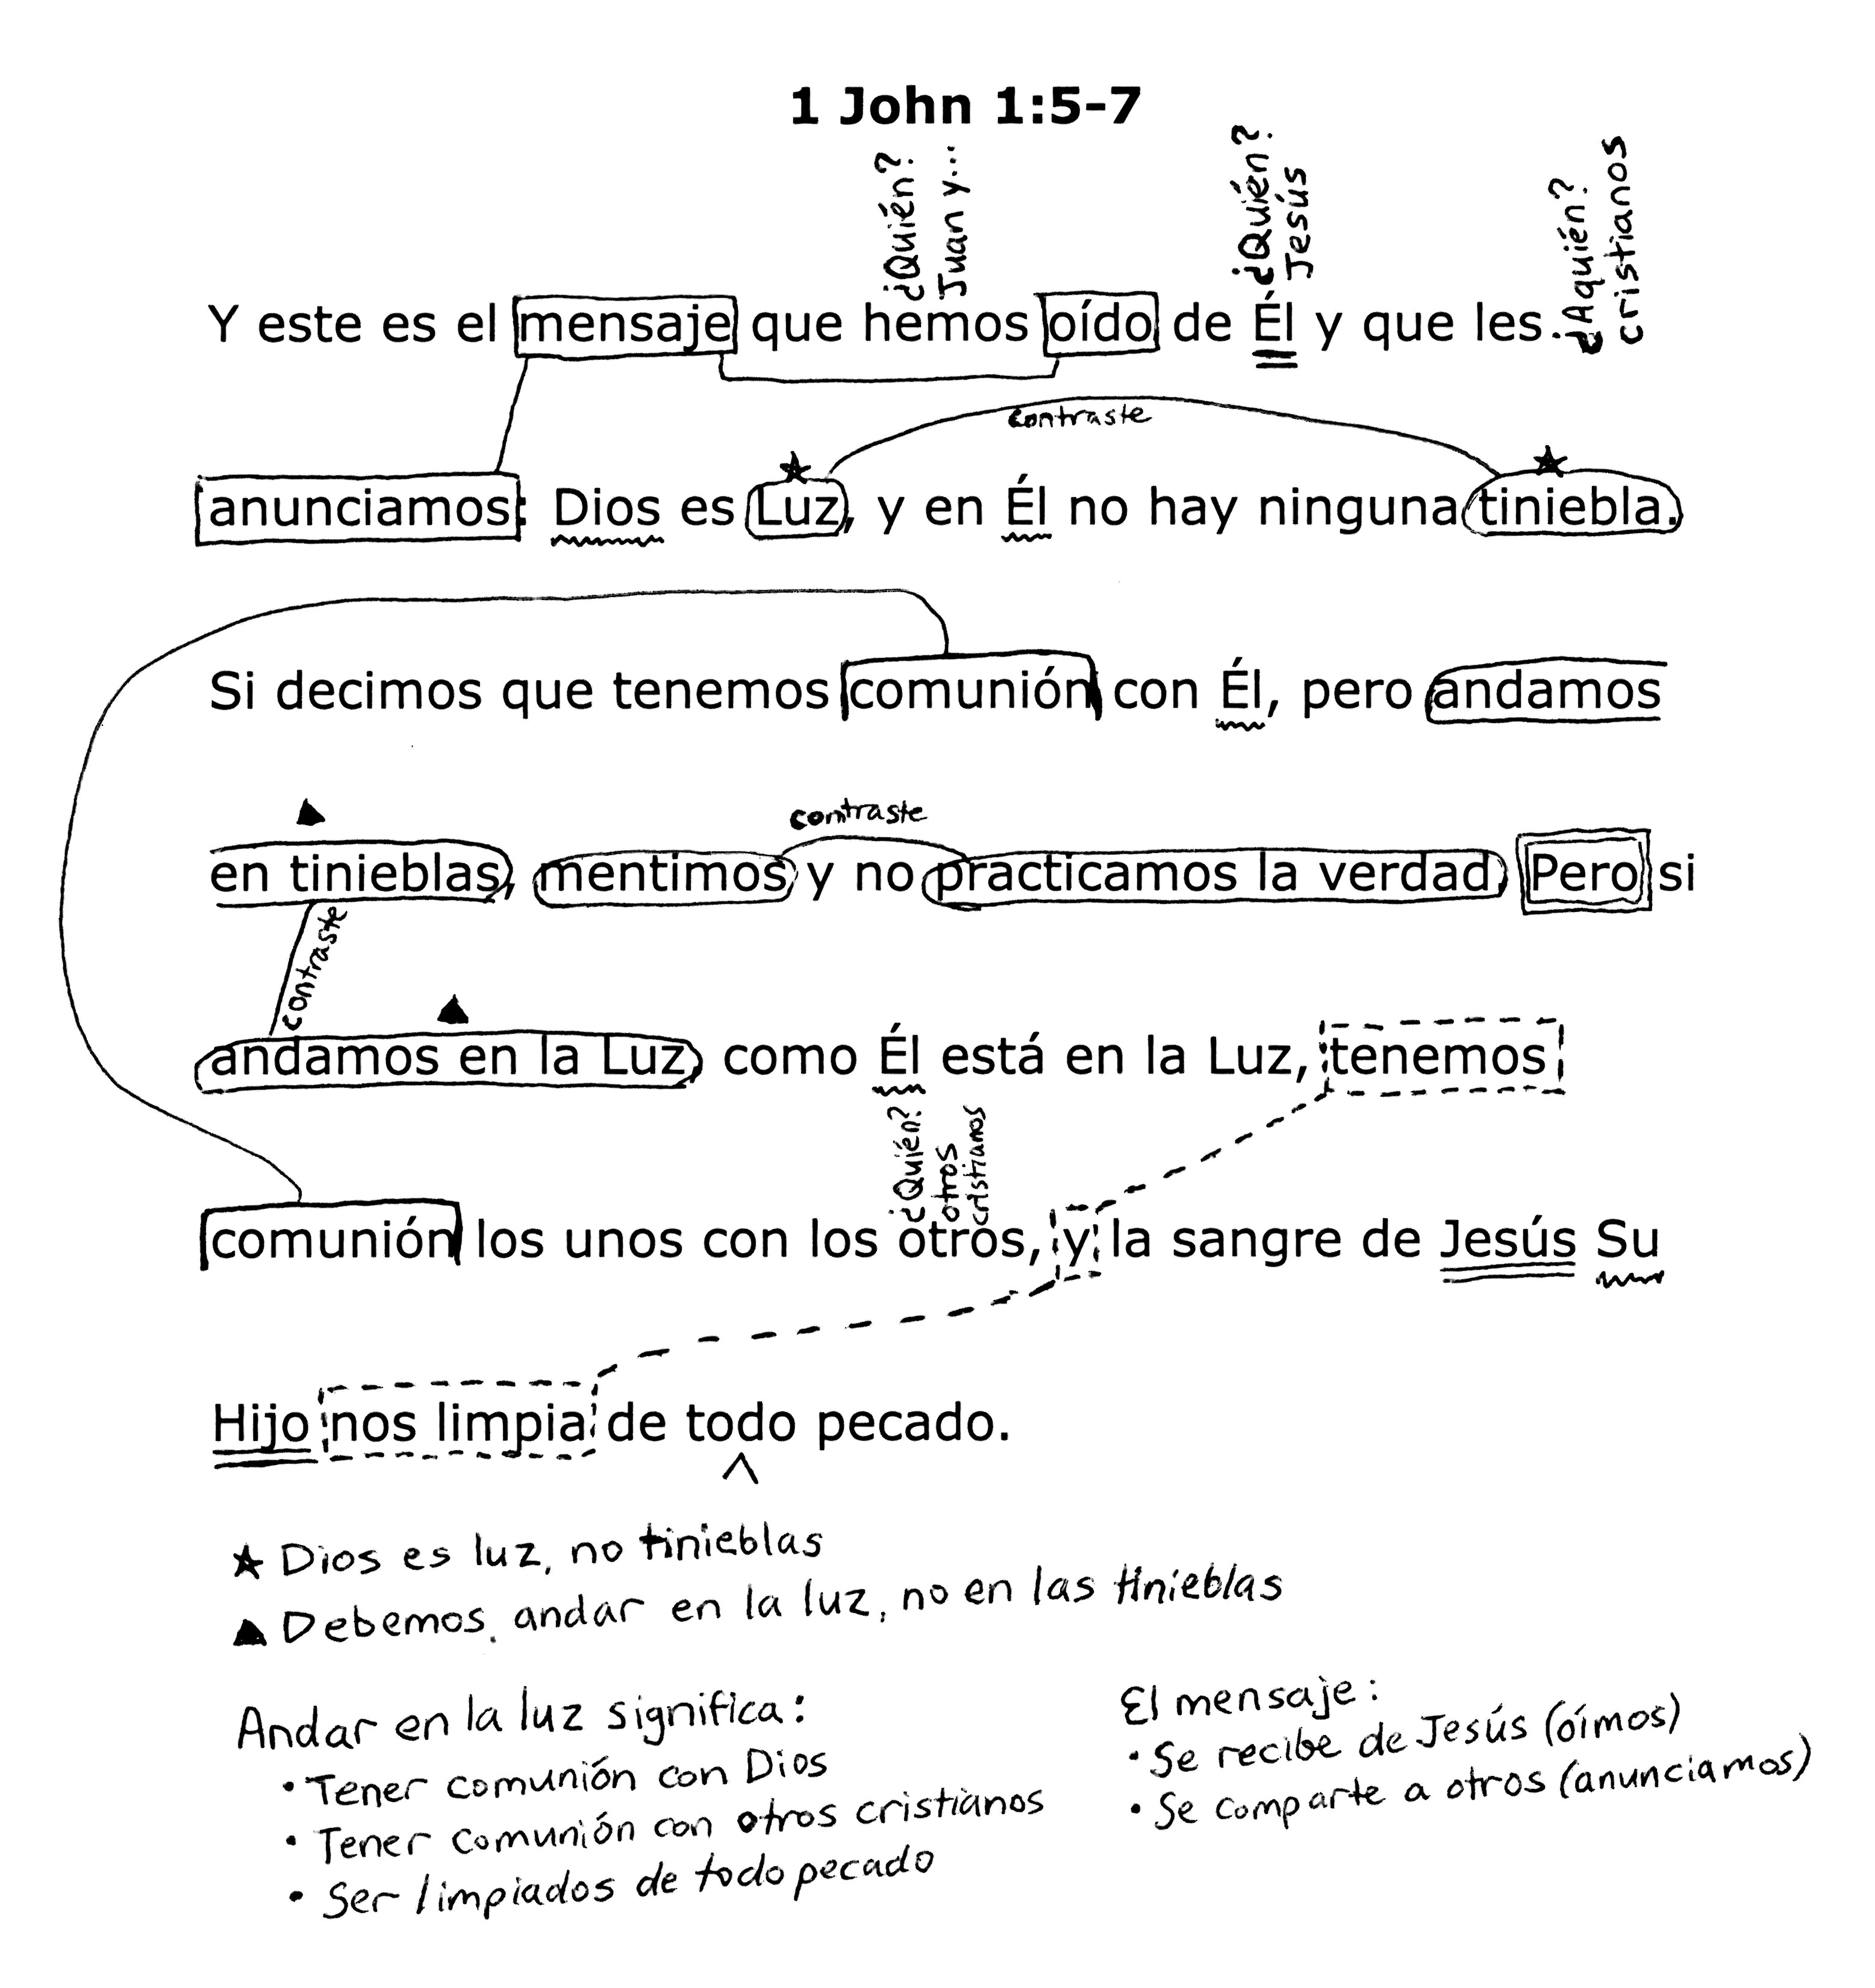 1 John 1:5-7
¿Quién?
Juan y...
¿Quién?
Jesús
¿Aquién?
cristianos
Y este es el mensaje que hemos oído de Él y que les
contraste
anunciamos: Dios es Luz, y en Él no hay ninguna tiniebla.
Si decimos que tenemos comunión con Él, pero andamos
contraste
en tinieblas, mentimos y no practicamos la verdad. Pero si
contraste
andamos en la Luz, como Él está en la Luz, tenemos
¿Quién?
otros
cristianos
comunión los unos con los otros, y la sangre de Jesús Su
Hijo nos limpia de todo pecado.
★ Dios es luz, no tinieblas
▲ Debemos andar en la luz, no en las tinieblas
Andar en la luz significa:
• Tener comunión con Dios
• Tener comunión con otros cristianos
• Ser limpiados de todo pecado
El mensaje:
• Se recibe de Jesús (oímos)
• Se comparte a otros (anunciamos)